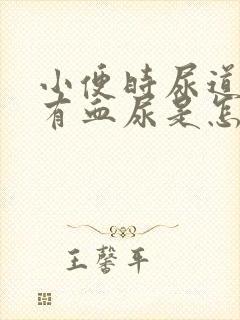 小便时尿道
有血尿是怎
王馨平